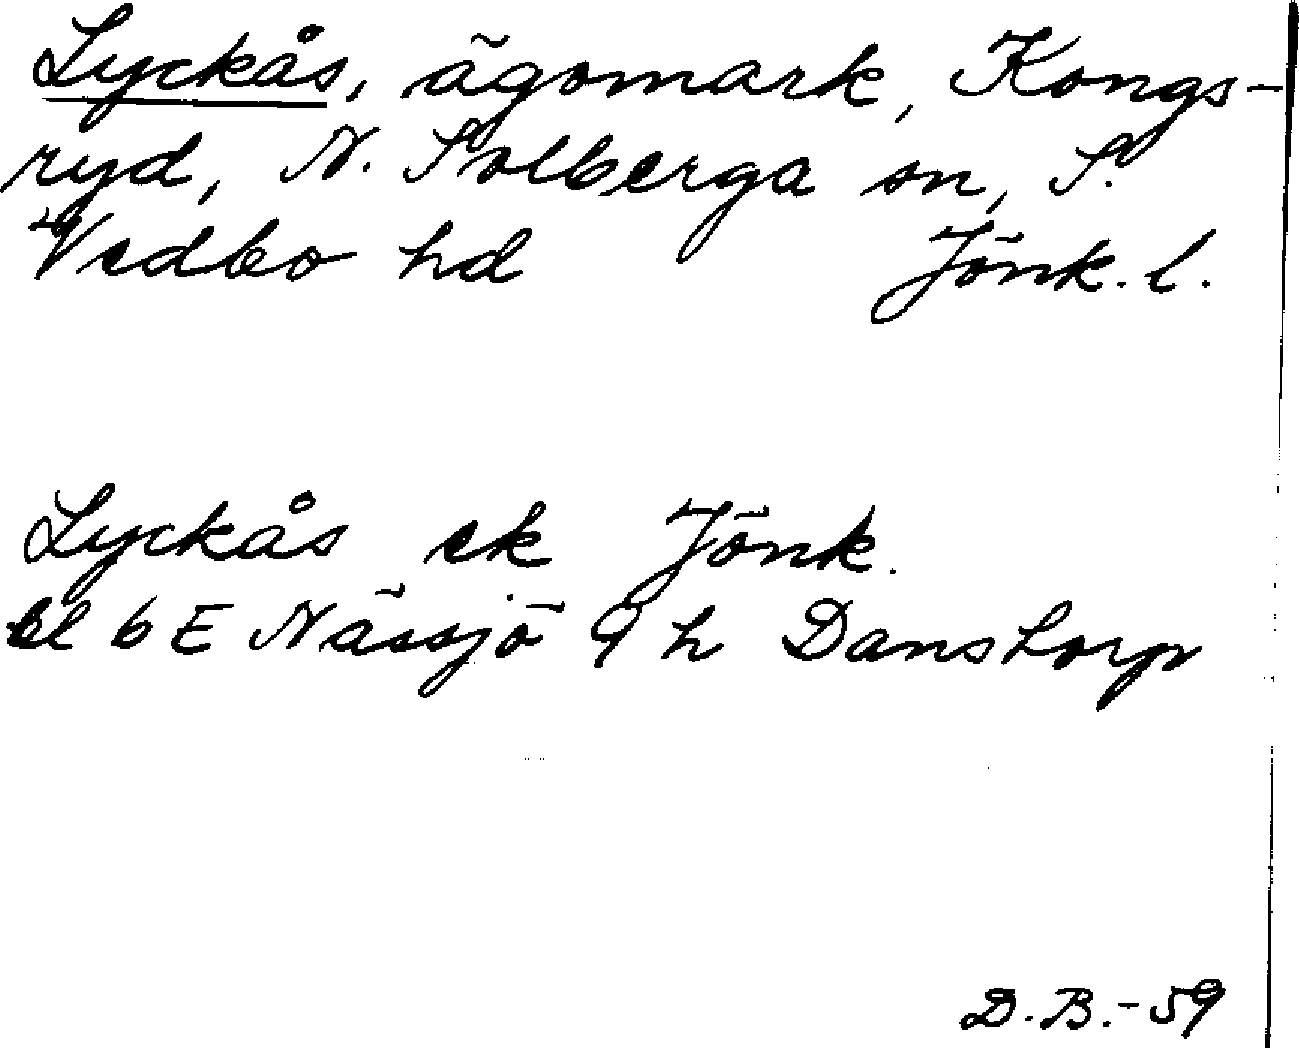 Lyckås, ägomark, Kongs-
ryd, N. Solberga sn, S.
Vedbo hd Jönk. l.
Lyckås ek Jönk.
bl 6 E Nässjö 9 h Danstorp
D.B.-59